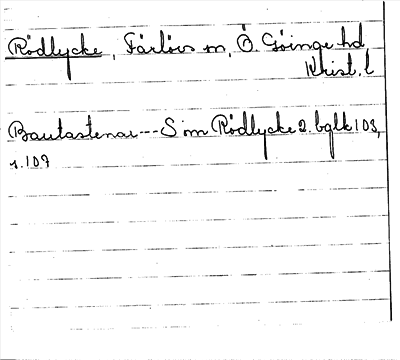 Rödlycke, Färlövs sn, Ö. Göinge hd
Krist. l
Bautastenar --- S om Rödlycke 2. bglk 103,
s. 109